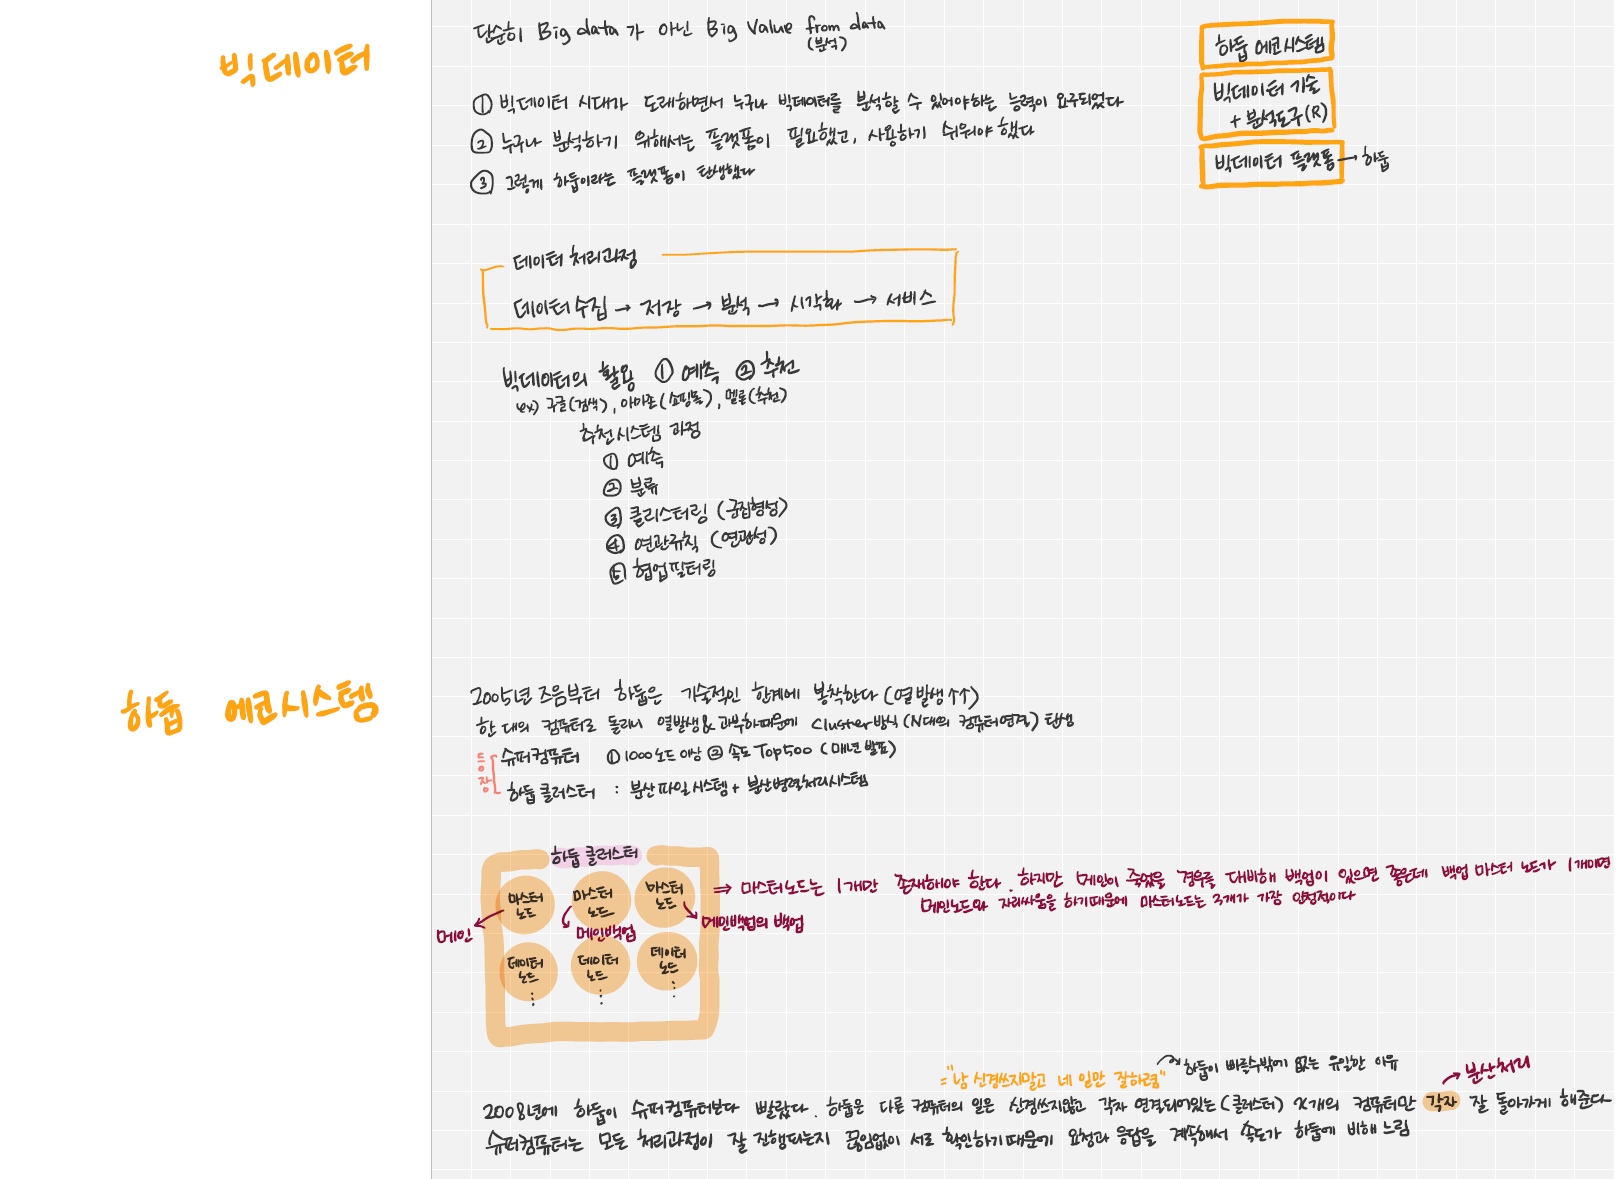 빅데이터
단순히 Big data가 아닌 Big Value from data
(분석)
① 빅데이터 시대가 도래하면서 누구나 빅데이터를 분석할 수 있어야하는 능력이 요구되었다
② 누구나 분석하기 위해서는 플랫폼이 필요했고, 사용하기 쉬워야 했다
③ 그렇게 하둡이라는 플랫폼이 탄생했다
하둡 에코시스템
빅데이터 기술
+ 분석도구(R)
빅데이터 플랫폼 → 하둡
데이터 처리과정
데이터 수집 → 저장 → 분석 → 시각화 → 서비스
빅데이터의 활용 ① 예측 ② 추천
ex) 구글(검색), 아마존(쇼핑몰), 멜론(추천)
추천시스템 과정
① 예측
② 분류
③ 클러스터링 (군집형성)
④ 연관규칙 (연관성)
⑤ 협업필터링
하둡 에코시스템
2005년 즈음부터 하둡은 기술적인 한계에 봉착한다 (열발생↑↑)
한 대의 컴퓨터로 돌리니 열발생 & 과부하때문에 Cluster방식 (N대의 컴퓨터연결) 탄생
등장
슈퍼컴퓨터 ① 1000노드 이상 ② 속도 Top500 (매년 발표)
하둡 클러스터 : 분산파일시스템 + 분산병렬처리시스템
하둡 클러스터
마스터 노드 마스터 노드 마스터 노드
⇒ 마스터노드는 1개만 존재해야 한다. 하지만 메인이 죽었을 경우를 대비해 백업이 있으면 좋은데 백업 마스터 노드가 1개이면
메인노드와 자리싸움을 하기때문에 마스터노드는 3개가 가장 안정적이다
메인 메인백업 메인백업의 백업
데이터 노드 데이터 노드 데이터 노드
="남 신경쓰지말고 네 일만 잘하렴" 하둡이 빠를수밖에 없는 유일한 이유
→ 분산처리
2008년에 하둡이 슈퍼컴퓨터보다 빨랐다. 하둡은 다른 컴퓨터의 일은 신경쓰지않고 각자 연결되어있는 (클러스터) x개의 컴퓨터만 각자 잘 돌아가게 해준다
슈퍼컴퓨터는 모든 처리과정이 잘 진행되는지 끊임없이 서로 확인하기때문에 요청과 응답을 계속해서 속도가 하둡에 비해 느림